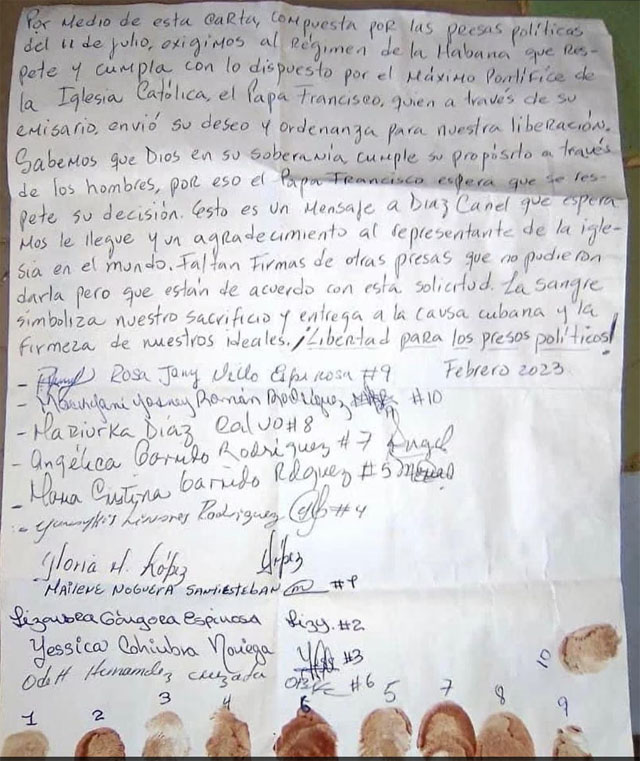 Por Medio de esta Carta, compuesta por las presas políticas
del 11 de julio, exigimos al Régimen de la Habana que Res-
pete y cumpla con lo dispuesto por el Máximo Pontífice de
la Iglesia Católica, el Papa Francisco, quien a través de su
emisario, envió su deseo y ordenanza para nuestra liberación.
Sabemos que Dios en su soberanía cumple su propósito a través
de los hombres, por eso el Papa Francisco espera que se res-
pete su decisión. Esto es un Mensaje a Díaz Canel que espera
Mos le llegue y un agradecimiento al representante de la igle-
sia en el mundo. Faltan Firmas de otras presas que no pudieron
darla pero que están de acuerdo con esta solicitud. La sangre
simboliza nuestro sacrificio y entrega a la causa cubana y la
firmeza de nuestros ideales. ¡Libertad para los presos políticos!
Febrero 2023.
- Rosa Jany Espinosa #9
- Yosney Román Rodríguez #10
- Maziurka Díaz Calvo #8
- Angélica Garrido Rodríguez #7 Angel
- María Cristina Garrido Rdguez #5
- Linares Rodríguez #4
Gloria M. López López
Mailene Noguera Santiesteban #1
Lizandra Góngora Espinosa Lizy. #2
Yessica Cohiubra Noriega #3
Odett Hernandez #6
10
1 2 3 4 6 5 7 8 9